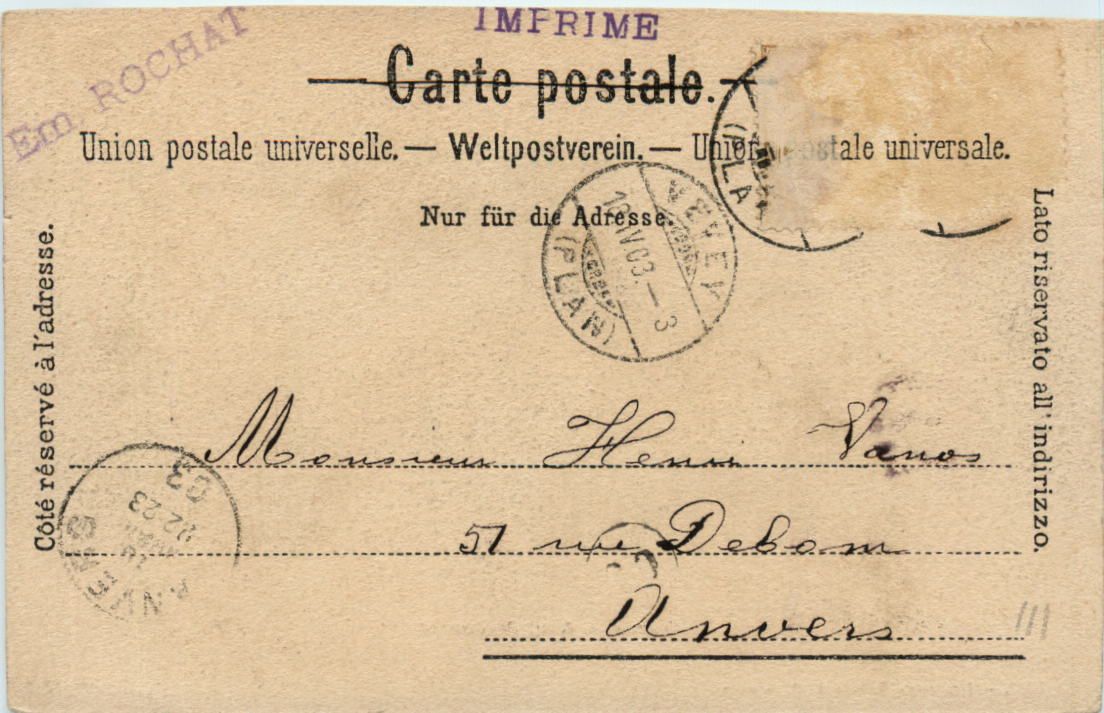 IMPRIME
Em. ROCHAT
Carte postale.
Union postale universelle. — Weltpostverein. — Unione postale universale.
Nur für die Adresse.
Côté réservé à l'adresse.
Lato riservato all' indirizzo.
(PLA
VEVEY
IV03.–3
(PLAN)
Monsieur Henri Vanos
51 rue Debom
Anvers
ANVERS
22-23
03